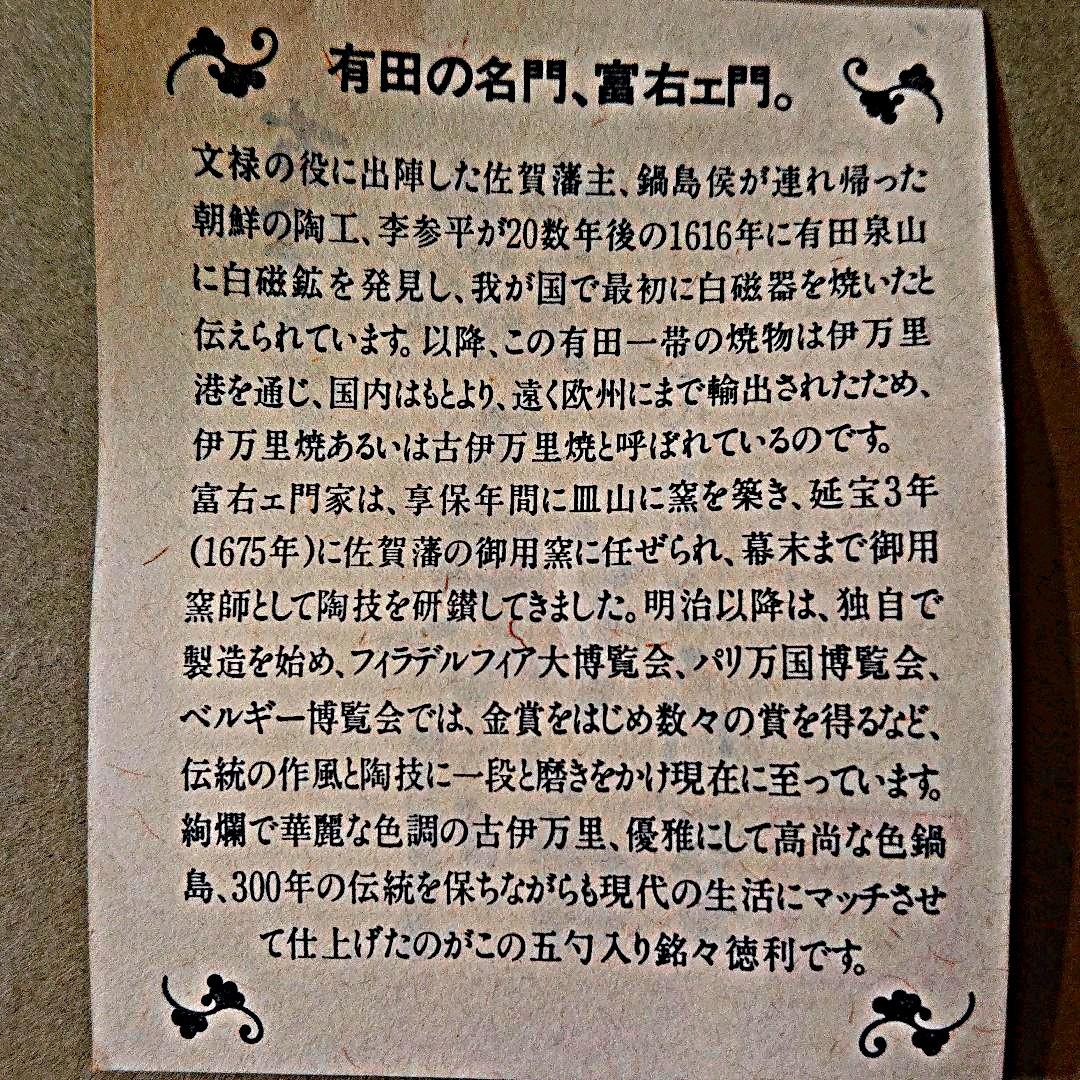 有田の名門、富右ェ門。
文禄の役に出陣した佐賀藩主、鍋島侯が連れ帰った
朝鮮の陶工、李参平が20数年後の1616年に有田泉山
に白磁鉱を発見し、我が国で最初に白磁器を焼いたと
伝えられています。以降、この有田一帯の焼物は伊万里
港を通じ、国内はもとより、遠く欧州にまで輸出されたため、
伊万里焼あるいは古伊万里焼と呼ばれているのです。
富右ェ門家は、享保年間に皿山に窯を築き、延宝3年
(1675年)に佐賀藩の御用窯に任ぜられ、幕末まで御用
窯師として陶技を研鑚してきました。明治以降は、独自で
製造を始め、フィラデルフィア大博覧会、パリ万国博覧会、
ベルギー博覧会では、金賞をはじめ数々の賞を得るなど、
伝統の作風と陶技に一段と磨きをかけ現在に至っています。
絢爛で華麗な色調の古伊万里、優雅にして高尚な色鍋
島、300年の伝統を保ちながらも現代の生活にマッチさせ
て仕上げたのがこの五勺入り銘々徳利です。